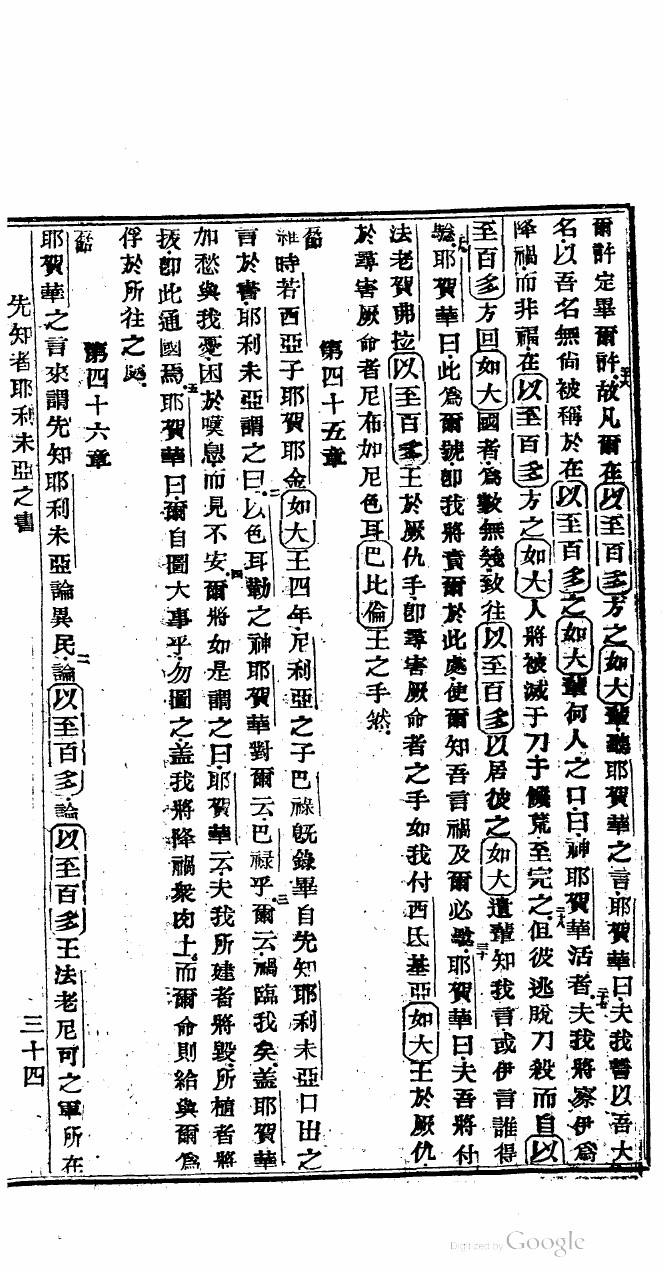 爾許定畢爾許故凡爾在以至百多方之如大輩聽耶賀華之言耶賀華曰夫我誓以吾大
名以吾名無尙被稱於在以至百多之如大輩何人之口曰神耶賀華活者夫我將察伊爲
降禍而非福在以至百多方之如大人將被滅于刀于饑荒至完之但彼逃脫刀殺而自以
至百多方回如大國者爲數無幾致往以至百多以居彼之如大遺輩知我言或伊言誰得
驗耶賀華曰此爲爾號卽我將責爾於此處使爾知吾言禍及爾必驗耶賀華曰夫吾將付
法老賀弗拉以至百多王於厥仇手卽尋害厥命者之手如我付西氏基亞如大王於厥仇
於尋害厥命者尼布如尼色耳巴比倫王之手然
第四十五章
節一維時若西亞子耶賀耶金如大王四年尼利亞之子巴祿旣錄畢自先知耶利未亞口出之
言於書耶利未亞謂之曰二以色耳勒之神耶賀華對爾云巴祿乎三爾云禍臨我矣蓋耶賀華
加愁與我憂困於嘆息而見不安四爾將如是謂之曰耶賀華云夫我所建者將毀所植者將
拔卽此通國焉五耶賀華曰爾自圖大事乎勿圖之蓋我將降禍衆肉上而爾命則給與爾爲
俘於所往之處
第四十六章
節一耶賀華之言來謂先知耶利未亞論異民二論以至百多論以至百多王法老尼可之軍所在
先知者耶利未亞之書 三十四
Digitized by Google